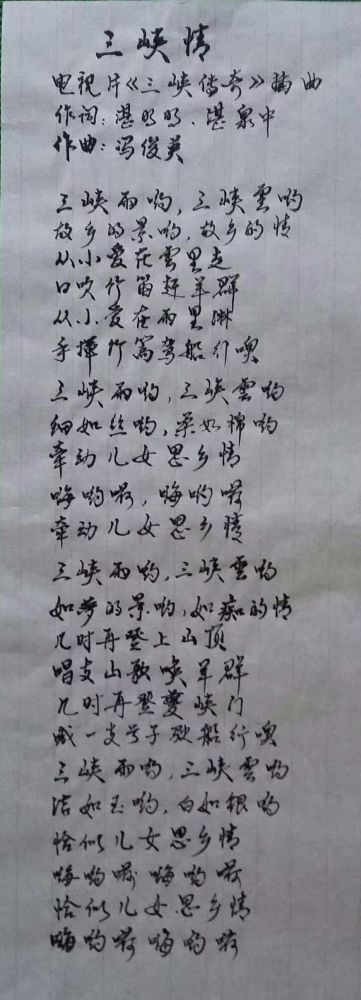 三峡情
电视片《三峡传奇》插曲
作词：湛明明、湛泉中
作曲：冯俊英
三峡雨哟，三峡雲哟
故乡的景哟，故乡的情
从小爱在雲里走
口吹竹笛赶羊群
从小爱在雨里淋
手撑竹篙驾船行噢
三峡雨哟，三峡雲哟
细如丝哟，柔如棉哟
牵动儿女思乡情
嗨哟嗬，嗨哟嗬
牵动儿女思乡情
三峡雨哟，三峡雲哟
如梦的景哟，如痴的情
几时再登上山顶
唱支山歌唤羊群
几时再登夔峡门
喊一支号子放船行噢
三峡雨哟，三峡雲哟
洁如玉哟，白如银哟
恰似儿女思乡情
嗨哟嗬 嗨哟嗬
恰似儿女思乡情
嗨哟嗬 嗨哟嗬